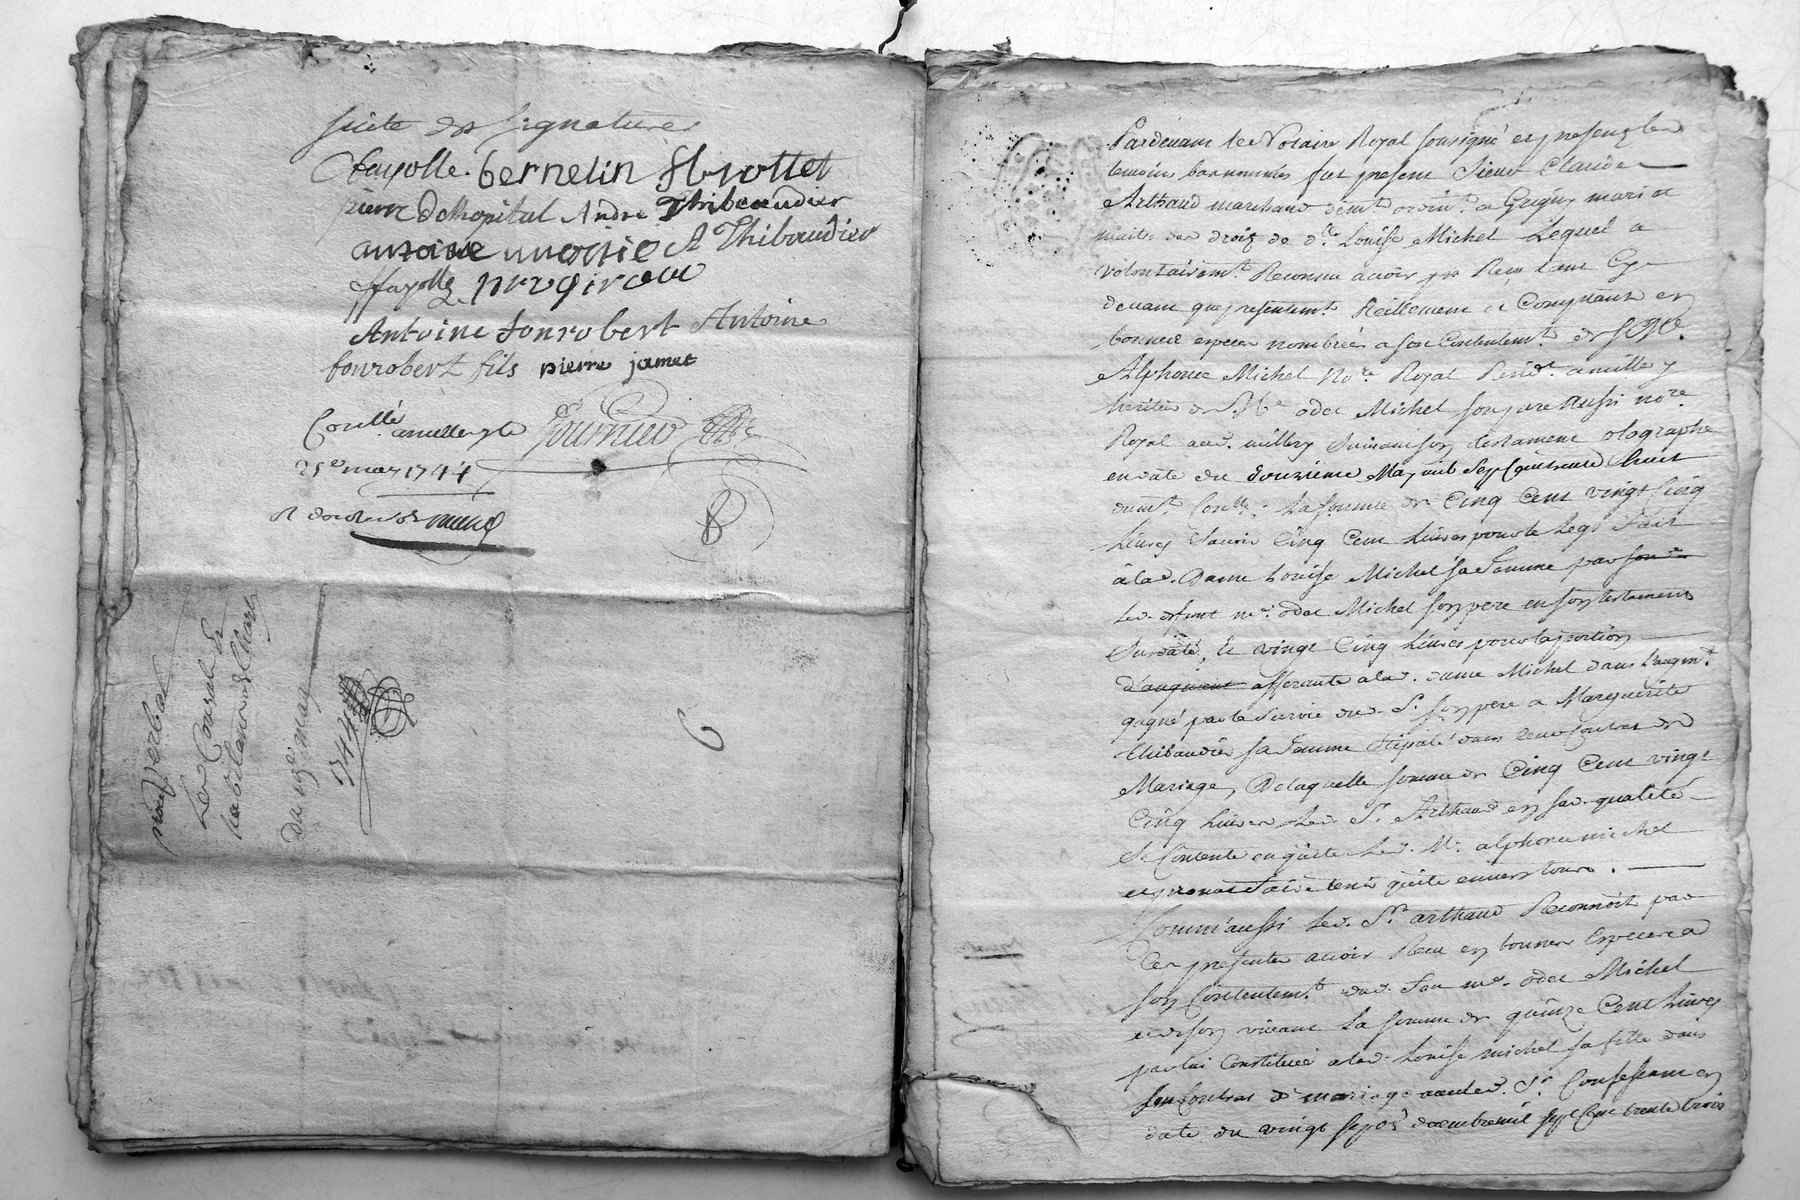 suitte des signatures
ffayolle. bernelin flvottet
pierre Delhopital André Thibeaudier
antoine A Thibaudier
ffayolle
Antoine fonrobert Antoine
fonrobert fils pierre jamet
Conllé amillery le fournier
25e may 1744
Pardevant le Notaire Royal soussigné et presents les
temoins bas nommés fut present Sieur Claude
Arthaud marchand demt. ordint. a Grigny mari et
maitre des droiz de dlle. Louise Michel Lequel a
volontairemt. Reconnu avoir eu & Receu tant Cy
devant que presentemt. Reellement et Comptant en
bonnes especes nombrées a son Contentemt. de sr Me.
Alphonce Michel nore. Royal Resident. a millery
heritier de Me. odet Michel son pere aussi nore.
Royal aud. millery suivant son testament olographe
en date du douzieme May mil Sept Cent trente huit
duemt. Conllé. la somme de Cinq Cent vingt Cinq
Livres savoir Cinq Cent Livres pour le legs fait
à lad. Dame Louise Michel sa femme par son
Led. defunt me. odet Michel son pere en son testament
susdaté, et vingt Cinq Livres pour la portion
d'augment afferante a lad. dame Michel dans l'augmt.
gagné par la survie dud. Sr. son pere a Marguerite
Thibaudier sa femme stipulé dans leur Contrat de
Mariage, De laquelle somme de Cinq Cent vingt
Cinq Livres Led. Sr. Arthaud en sad. qualité
se Contente en quitte Led. Me. alphonce michel
et promet faire tenir quitte envers tous.
Comm'aussi Led. Sr. arthaud Reconnoit par
Ces presentes avoir Receu en bonnes Especes a
son Contentemt. dud. feu me. odet Michel
et de son vivant la somme de quinze Cent livres
par lui Constituée a lad. Louise michel sa fille dans
son Contrat de mariage avec led. Sr. Confessant en
date du vingt sept xbre mil sept Cent trente trois
procez verbal
du 25e may
1744
6